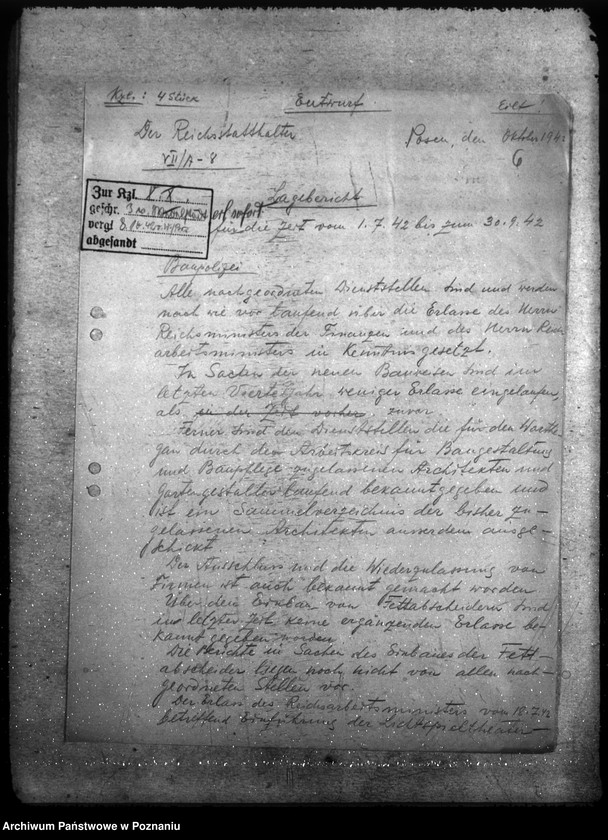 Kzl.: 4 Stück
Entwurf
Eilt!
Der Reichsstatthalter
Posen, den Oktober 194
VII/A-8
6
Zur Kzl. 8.X.
geschr. 3
vergl. 8.
abgesandt
sofort
Lagebericht
für die Zeit vom 1.7.42 bis zum 30.9.42
Baupolizei
Alle nachgeordneten Dienststellen sind und werden
nach wie vor laufend über die Erlasse des Herrn
Reichsministers der Finanzen und des Herrn Reichs
arbeitsministers in Kenntnis gesetzt.
In Sachen der neuen Bauweisen sind im
letzten Vierteljahr weniger Erlasse eingelaufen,
als in der Zeit vorher zuvor
Ferner sind den Dienststellen die für den Warthe-
gau durch den Arbeitskreis für Baugestaltung
und Baupflege zugelassenen Architekten und
Gartengestalter laufend bekanntgegeben und
ist ein Sammelverzeichnis der bisher zu-
gelassenen Architekten ausserdem ausge-
schickt
Der Ausschluss und die Wiederzulassung von
Firmen ist auch bekannt gemacht worden
Über den Einbau von Fettabscheidern sind
in letzter Zeit keine ergänzenden Erlasse be-
kannt gegeben worden
Die Berichte in Sachen des Einbaues der Fett-
abscheider liegen noch nicht von allen nach-
geordneten Stellen vor.
Der Erlass des Reichsarbeitsministers vom 18.7.42
betreffend Einführung der Lichtspieltheater-
Archiwum Państwowe w Poznaniu